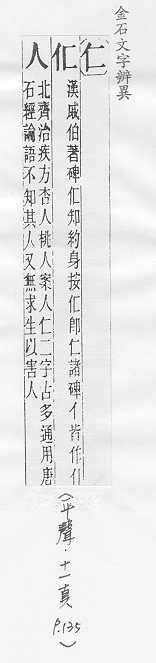 金石文字辨異
仁
仁 漢戚伯著碑仁知約身按仁卽仁諸碑亻皆作亻
人 北齊治疾方杏人桃人案人仁二字古多通用唐
石經論語不知其人又無求生以害人
(平聲.十一真 P.135)